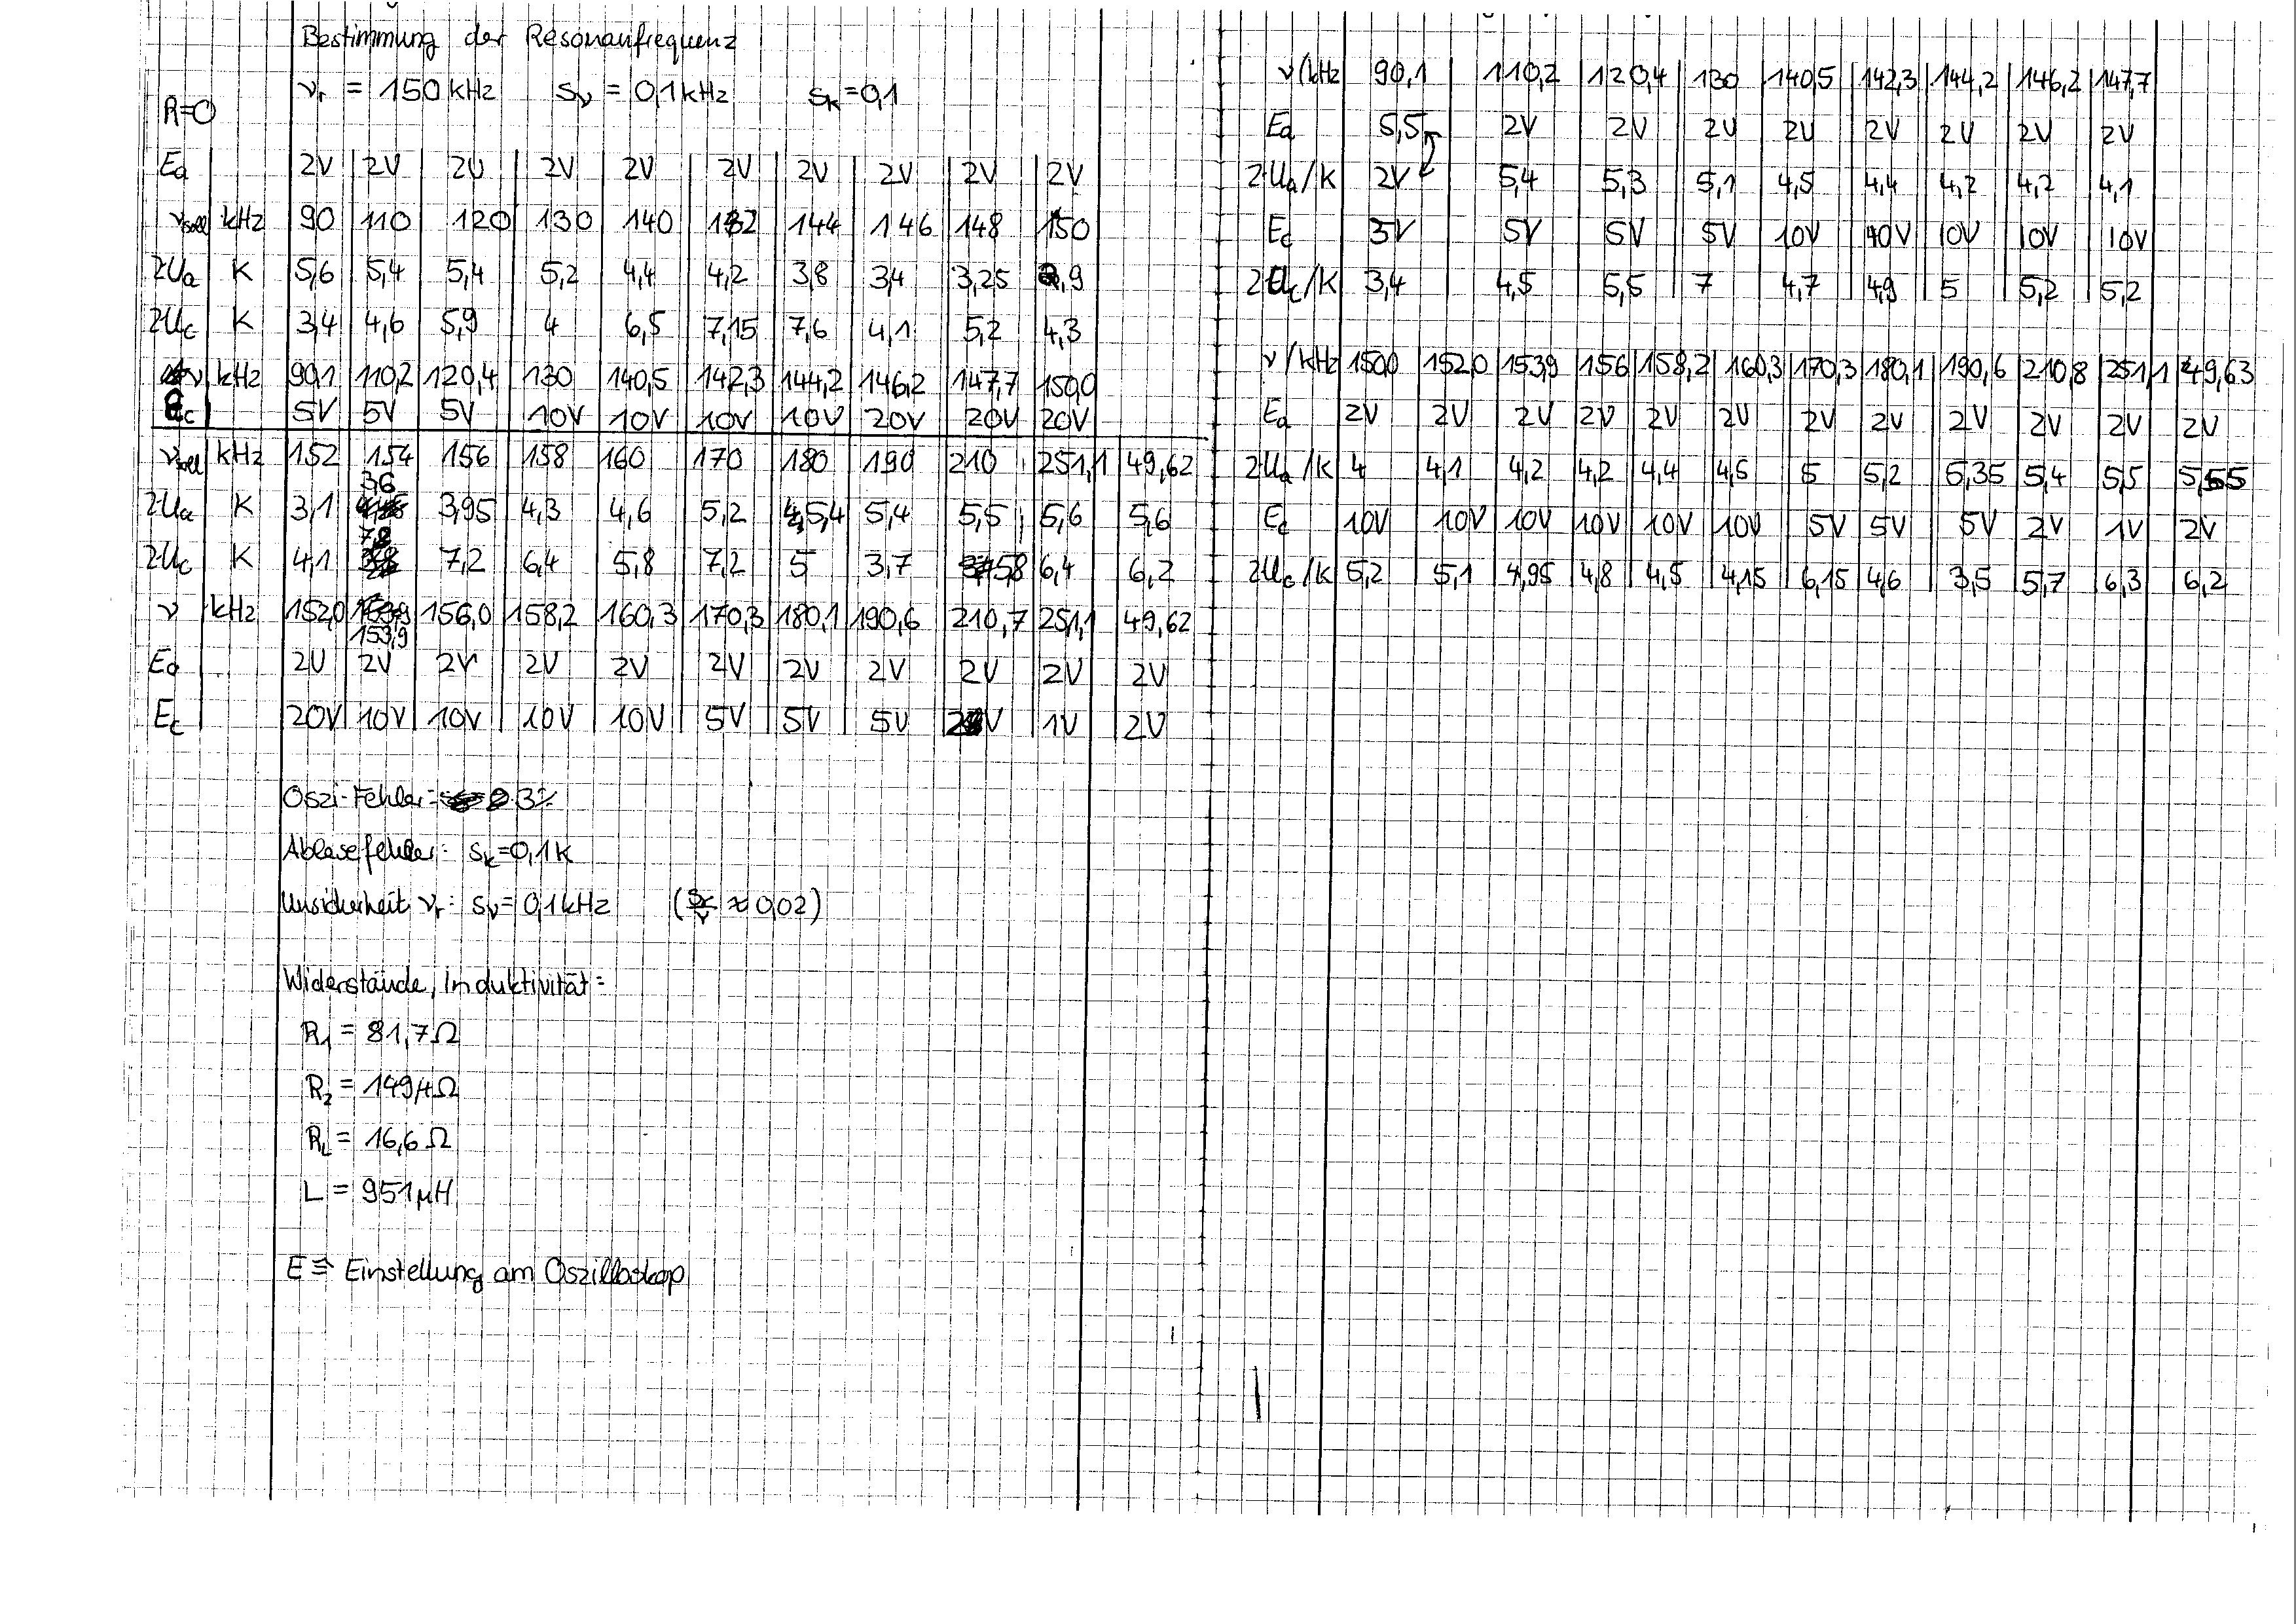 Bestimmung der Resonanzfrequenz
νr = 150 kHz sν = 0,1 kHz sk = 0,1
R=0
Ea 2V 2V 2V 2V 2V 2V 2V 2V 2V 2V
νsoll kHz 90 110 120 130 140 142 144 146 148 150
2Ua K 5,6 5,4 5,4 5,2 4,4 4,2 3,8 3,4 3,25 2,9
2Uc K 3,4 4,6 5,9 4 6,5 7,15 7,6 4,1 5,2 4,3
ν kHz 90,1 110,2 120,4 130 140,5 142,3 144,2 146,2 147,7 150,0
Ec 5V 5V 5V 10V 10V 10V 10V 20V 20V 20V
νsoll kHz 152 154 156 158 160 170 180 190 210 251,1 49,62
2Ua K 3,1 3,6 3,95 4,3 4,6 5,2 5,4 5,4 5,5 5,6 5,6
2Uc K 4,1 7,8 7,2 6,4 5,8 7,2 5 3,7 5,8 6,4 6,2
ν kHz 152,0 153,9 156,0 158,2 160,3 170,3 180,1 190,6 210,7 251,1 49,62
Ea 2V 2V 2V 2V 2V 2V 2V 2V 2V 2V 2V
Ec 20V 10V 10V 10V 10V 5V 5V 5V 2V 1V 2V
Oszi-Fehler: 3%
Ablesefehler: sk=0,1K
Unsicherheit νr: sν= 0,1 kHz ( ≈ 0,02)
Widerstände, Induktivität:
R1 = 81,7Ω
R2 = 149,1Ω
RL = 16,6Ω
L = 951μH
E ≙ Einstellung am Oszilloskop
ν/kHz 90,1 110,2 120,4 130 140,5 142,3 144,2 146,2 147,7
Ea 5,5 2V 2V 2V 2V 2V 2V 2V 2V
2Ua/K 2V 5,4 5,3 5,1 4,5 4,4 4,2 4,2 4,1
Ec 5V 5V 5V 5V 10V 10V 10V 10V 10V
2Uc/K 3,4 4,5 5,5 7 4,7 4,9 5 5,2 5,2
ν/kHz 150,0 152,0 153,9 156 158,2 160,3 170,3 180,1 190,6 210,8 251,1 49,63
Ea 2V 2V 2V 2V 2V 2V 2V 2V 2V 2V 2V 2V
2Ua/K 4 4,1 4,2 4,2 4,4 4,5 5 5,2 5,35 5,4 5,5 5,55
Ec 10V 10V 10V 10V 10V 10V 5V 5V 5V 2V 1V 2V
2Uc/K 5,2 5,1 4,95 4,8 4,5 4,15 6,15 4,6 3,5 5,7 6,3 6,2